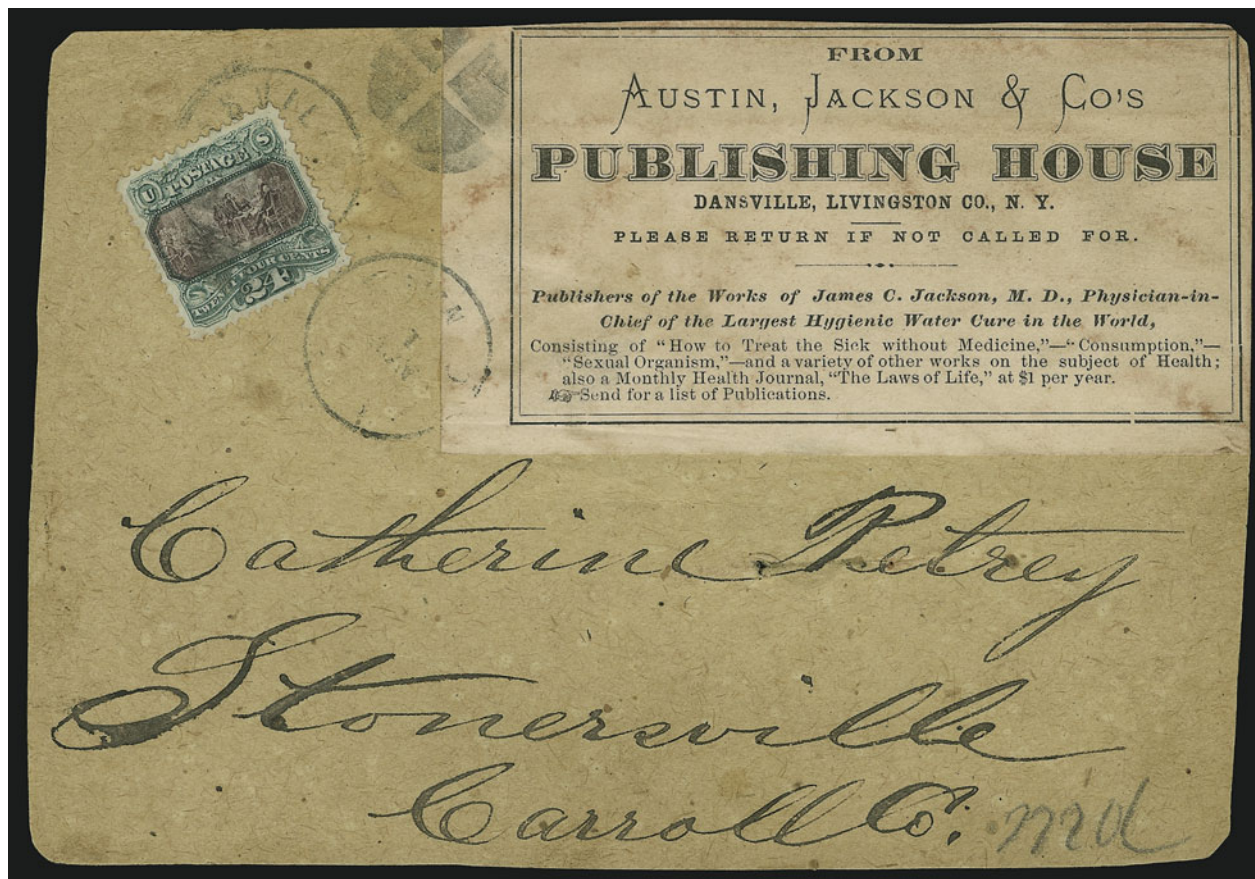 U POSTAGE S
TWENTY FOUR CENTS
24
FROM
AUSTIN, JACKSON & CO'S
PUBLISHING HOUSE
DANSVILLE, LIVINGSTON CO., N. Y.
PLEASE RETURN IF NOT CALLED FOR.
Publishers of the Works of James C. Jackson, M. D., Physician-in-
Chief of the Largest Hygienic Water Cure in the World,
Consisting of "How to Treat the Sick without Medicine,"—"Consumption,"—
"Sexual Organism,"—and a variety of other works on the subject of Health;
also a Monthly Health Journal, "The Laws of Life," at $1 per year.
☞Send for a list of Publications.
Catherine Petrey
Stonersville
Carroll Co. Md